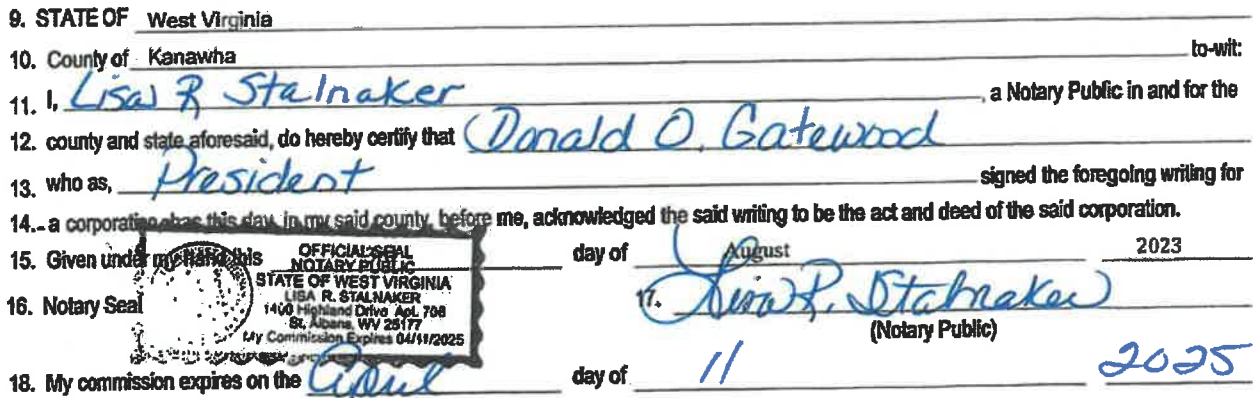 9. STATE OF West Virginia
10. County of Kanawha to-wit:
11. I, Lisa R Stalnaker, a Notary Public in and for the
12. county and state aforesaid, do hereby certify that Donald O. Gatewood
13. who as, President signed the foregoing writing for
14. a corporation has this day, in my said county, before me, acknowledged the said writing to be the act and deed of the said corporation.
15. Given under my hand this day of August 2023
OFFICIAL SEAL
NOTARY PUBLIC
STATE OF WEST VIRGINIA
LISA R. STALNAKER
1400 Highland Drive Apt. 708
St. Albans, WV 25177
My Commission Expires 04/11/2025
16. Notary Seal 17. Lisa R. Stalnaker
(Notary Public)
18. My commission expires on the April day of 11 2025